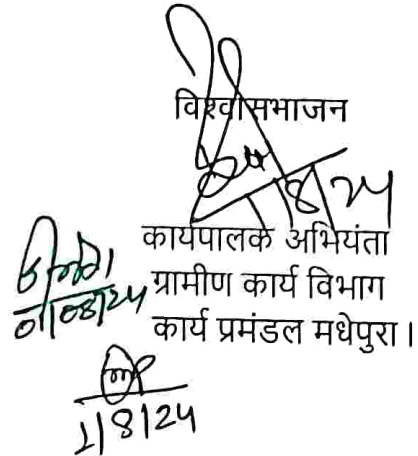 विश्वासभाजन
8/24
कार्यपालक अभियंता
ग्रामीण कार्य विभाग
कार्य प्रमंडल मधेपुरा।
2/8/24